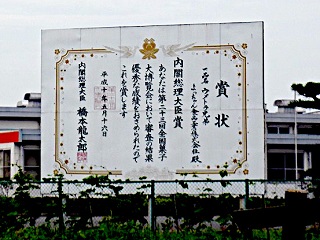 賞状
一名 ウイントラ
よっちゃん食品工業株式会社殿
内閣総理大臣賞
あなたは第二十三回全国菓子
大博覧会において審査の結果
優秀な成績をおさめられたので
これを賞します
平成十年五月十六日
内閣総理大臣 橋本龍太郎